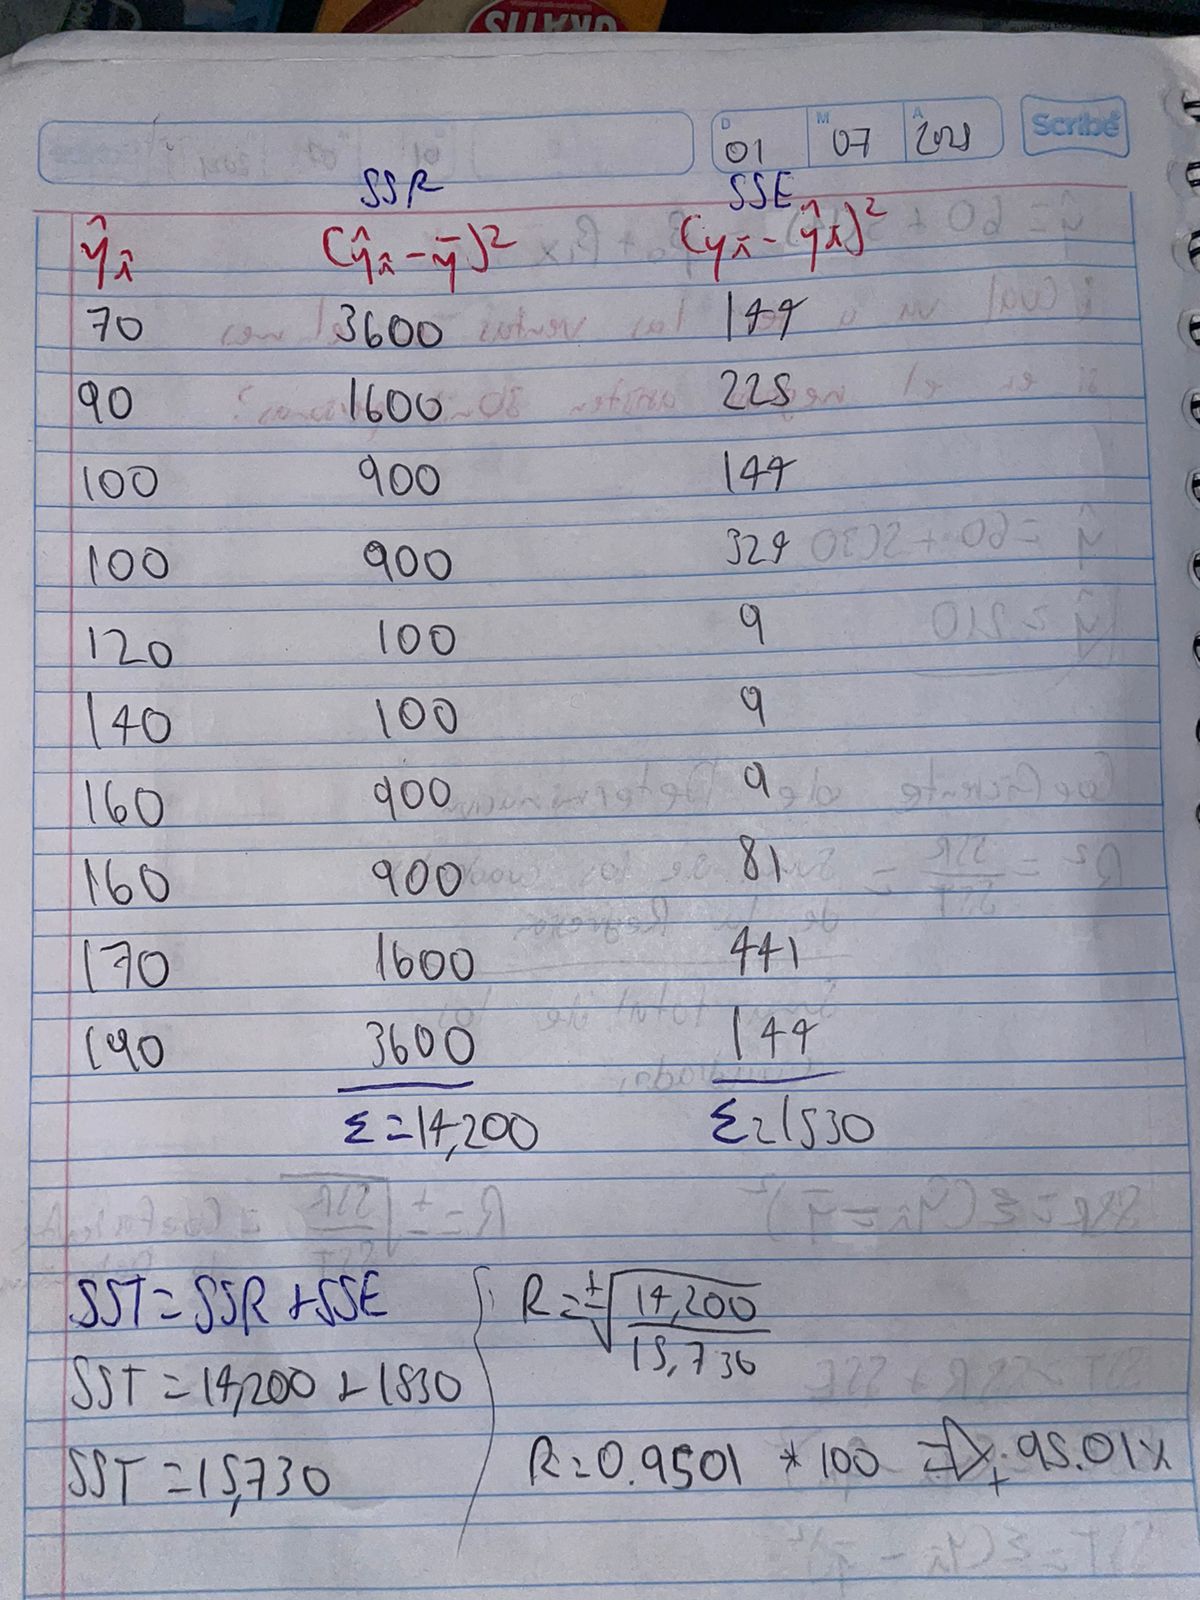 GRATIS
D 01 M 07 A 2021 Scribe
SSR SSE
ŷi (ŷi - ȳ)² (yi - ŷi)²
70 3600 144
90 1600 225
100 900 144
100 900 324
120 100 9
140 100 9
160 900 9
160 900 81
170 1600 441
190 3600 144
Σ = 14,200 Σ = 1530
SST = SSR + SSE
SST = 14,200 + 1530
SST = 15,730
R = ±√14,200
15,730
R = 0.9501 * 100 => ± 95.01%